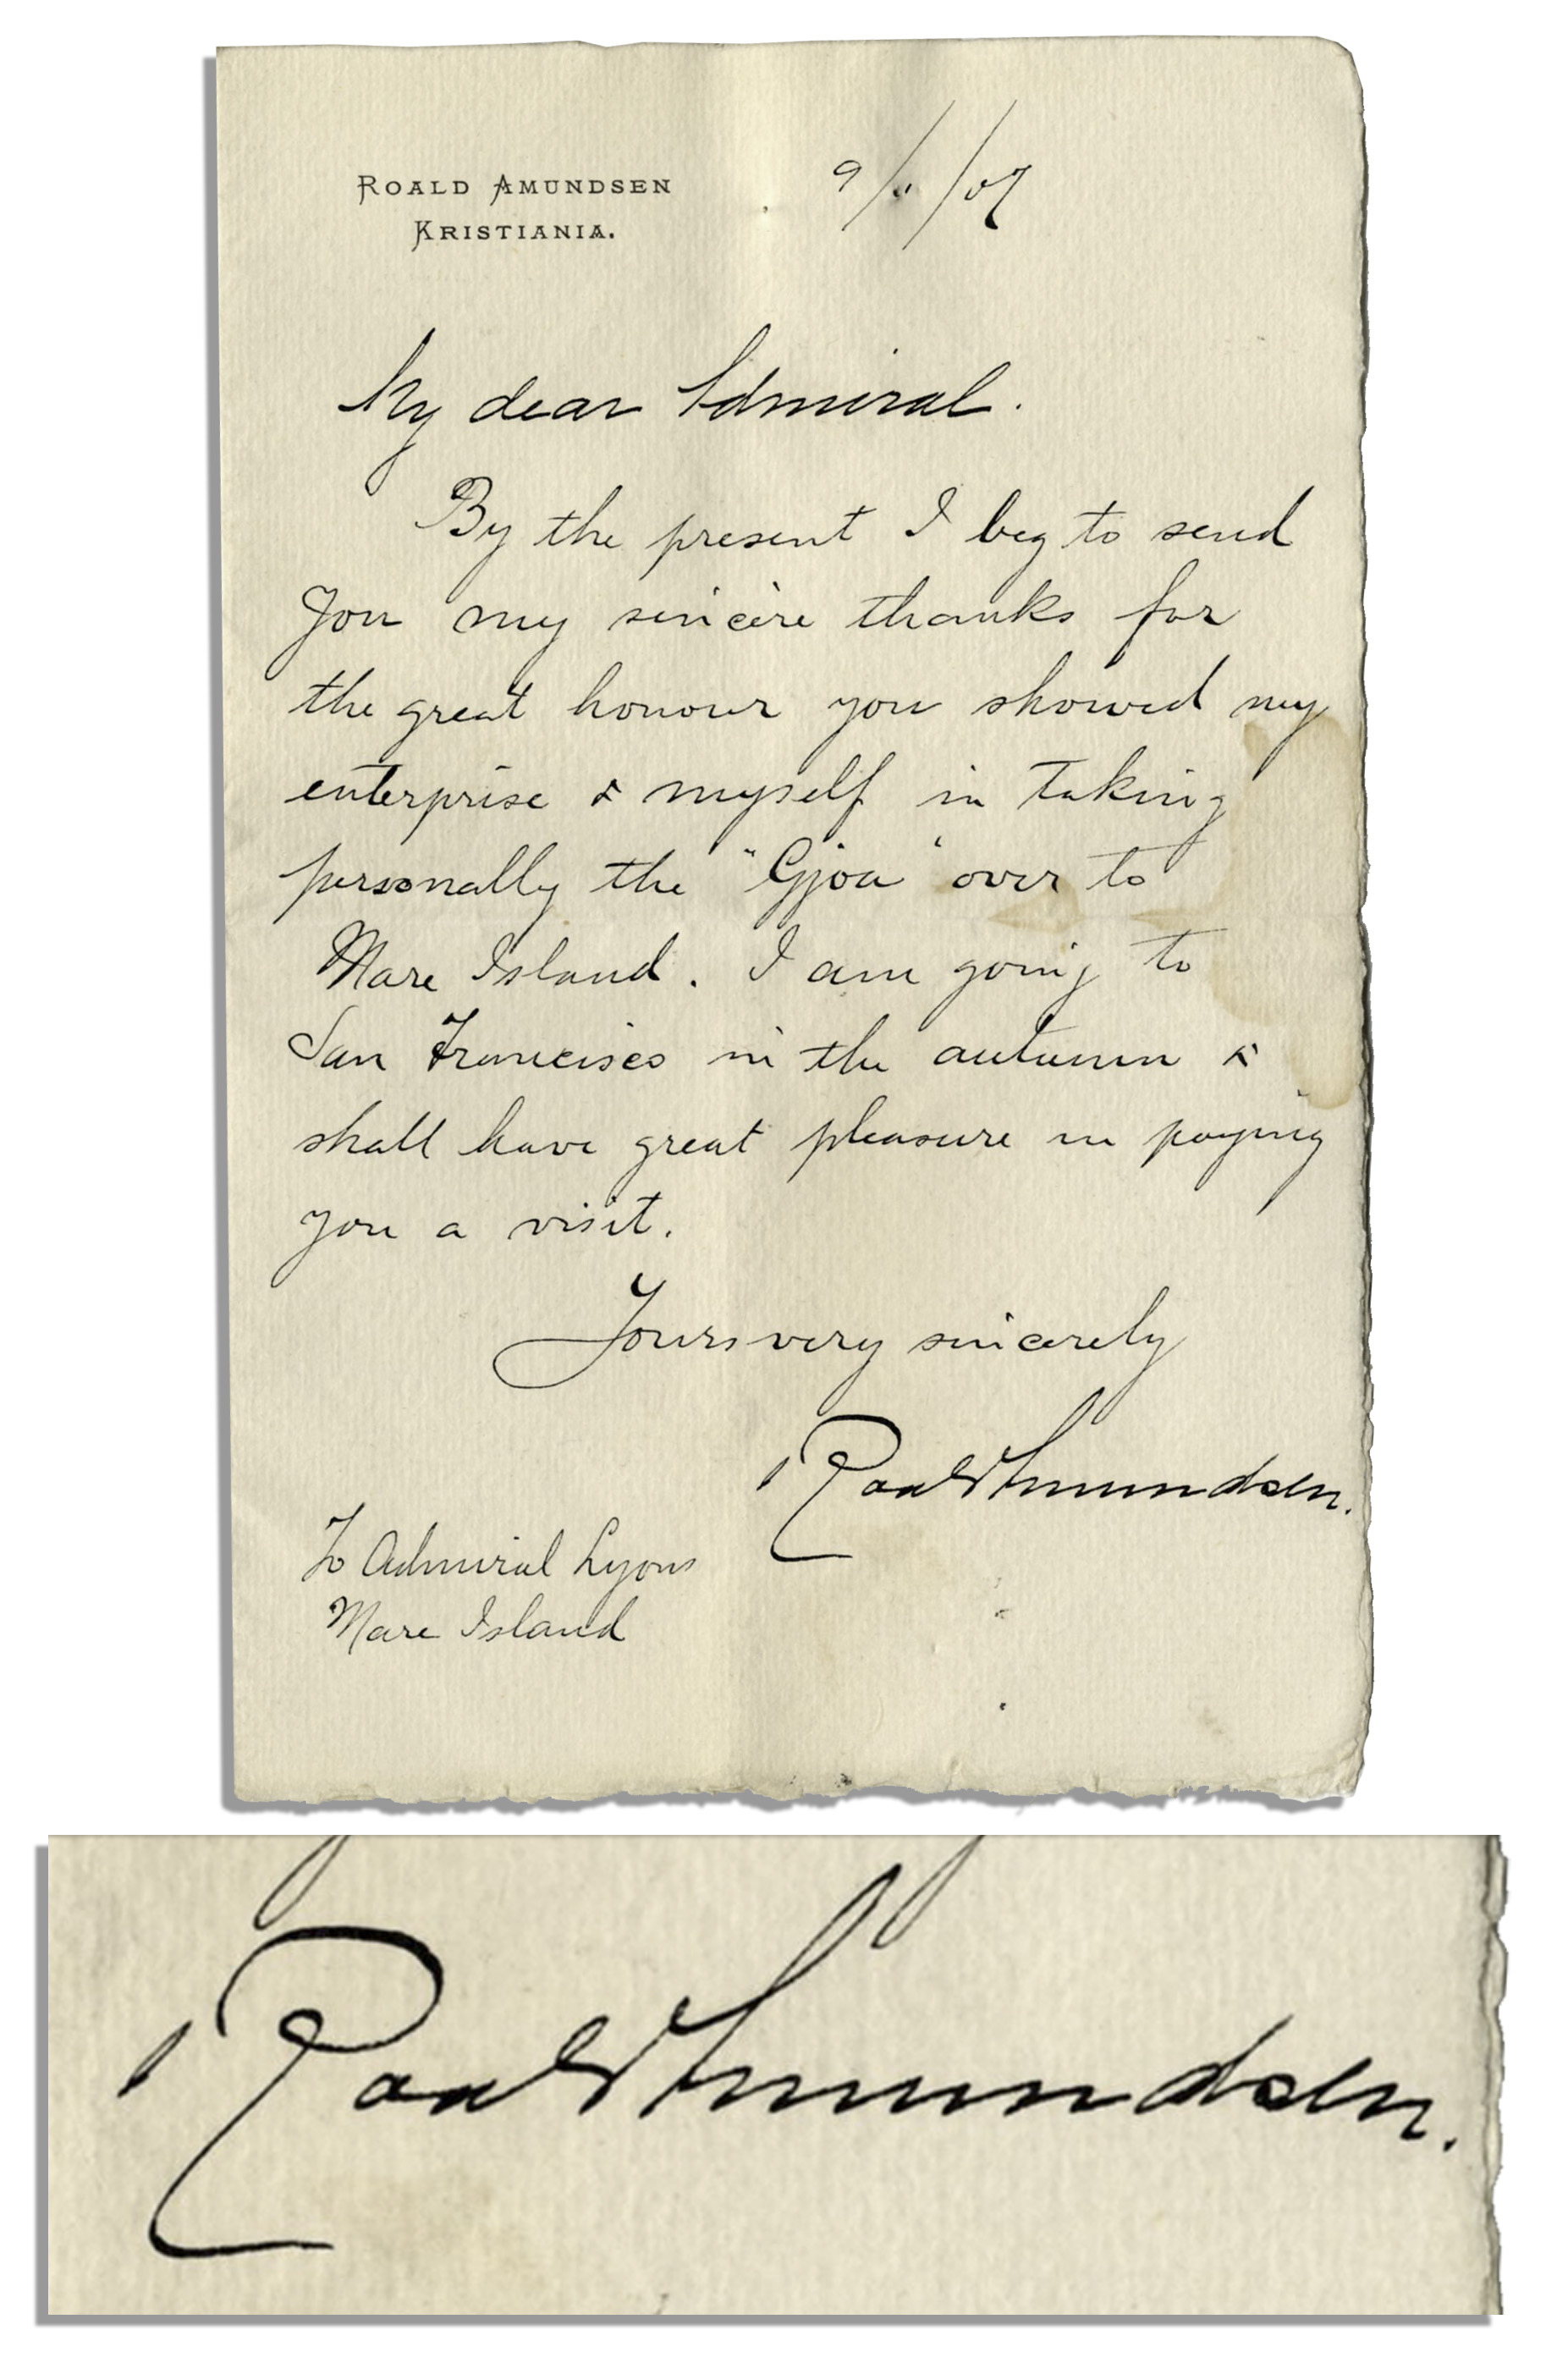 ROALD AMUNDSEN
KRISTIANIA.
9/ /07
My dear Admiral.
By the present I beg to send
you my sincere thanks for
the great honour you showed my
enterprise & myself in taking
personally the "Gjoa" over to
Mare Island. I am going to
San Francisco in the autumn &
shall have great pleasure in paying
you a visit.
Yours very sincerely
Roald Amundsen.
To Admiral Lyons
Mare Island
Roald Amundsen.